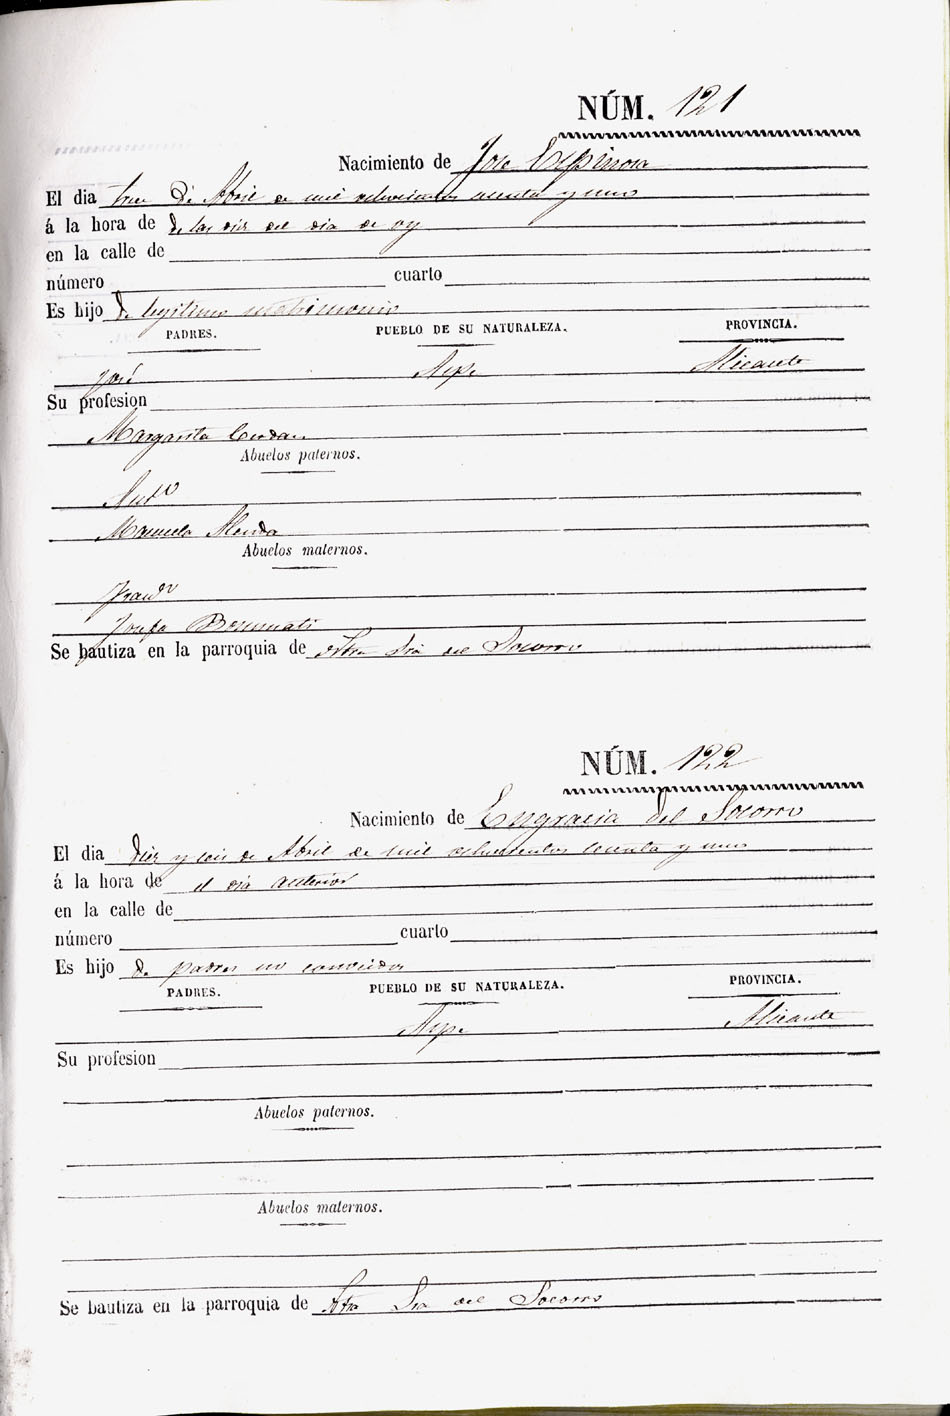 NÚM. 121
Nacimiento de Jose Espinosa
El dia trece de Abril de mil ochocientos sesenta y uno
á la hora de de las diez del dia de oy
en la calle de
número cuarto
Es hijo de legitimo matrimonio
PADRES. PUEBLO DE SU NATURALEZA. PROVINCIA.
José Aspe Alicante
Su profesion
Margarita Cerdan
Abuelos paternos.
Antº
Manuela Alenda
Abuelos maternos.
Franco
Josefa
Se bautiza en la parroquia de Ntra Sra del Socorro
NÚM. 122
Nacimiento de Engracia del Socorro
El dia diez y seis de Abril de mil ochocientos sesenta y uno
á la hora de el dia anterior
en la calle de
número cuarto
Es hijo de padres no conocidos
PADRES. PUEBLO DE SU NATURALEZA. PROVINCIA.
Aspe Alicante
Su profesion
Abuelos paternos.
Abuelos maternos.
Se bautiza en la parroquia de Ntra Sra del Socorro